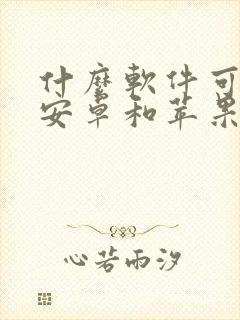 什麽軟件可
安卓和苹果
心若雨汐